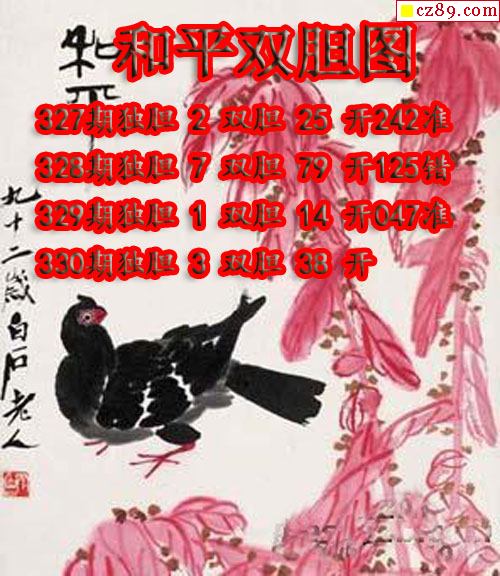 cz89.com
和平
和平双胆图
327期独胆 2 双胆 25 开242准
328期独胆 7 双胆 79 开125错
329期独胆 1 双胆 14 开047准
330期独胆 3 双胆 38 开
九十二岁白石老人